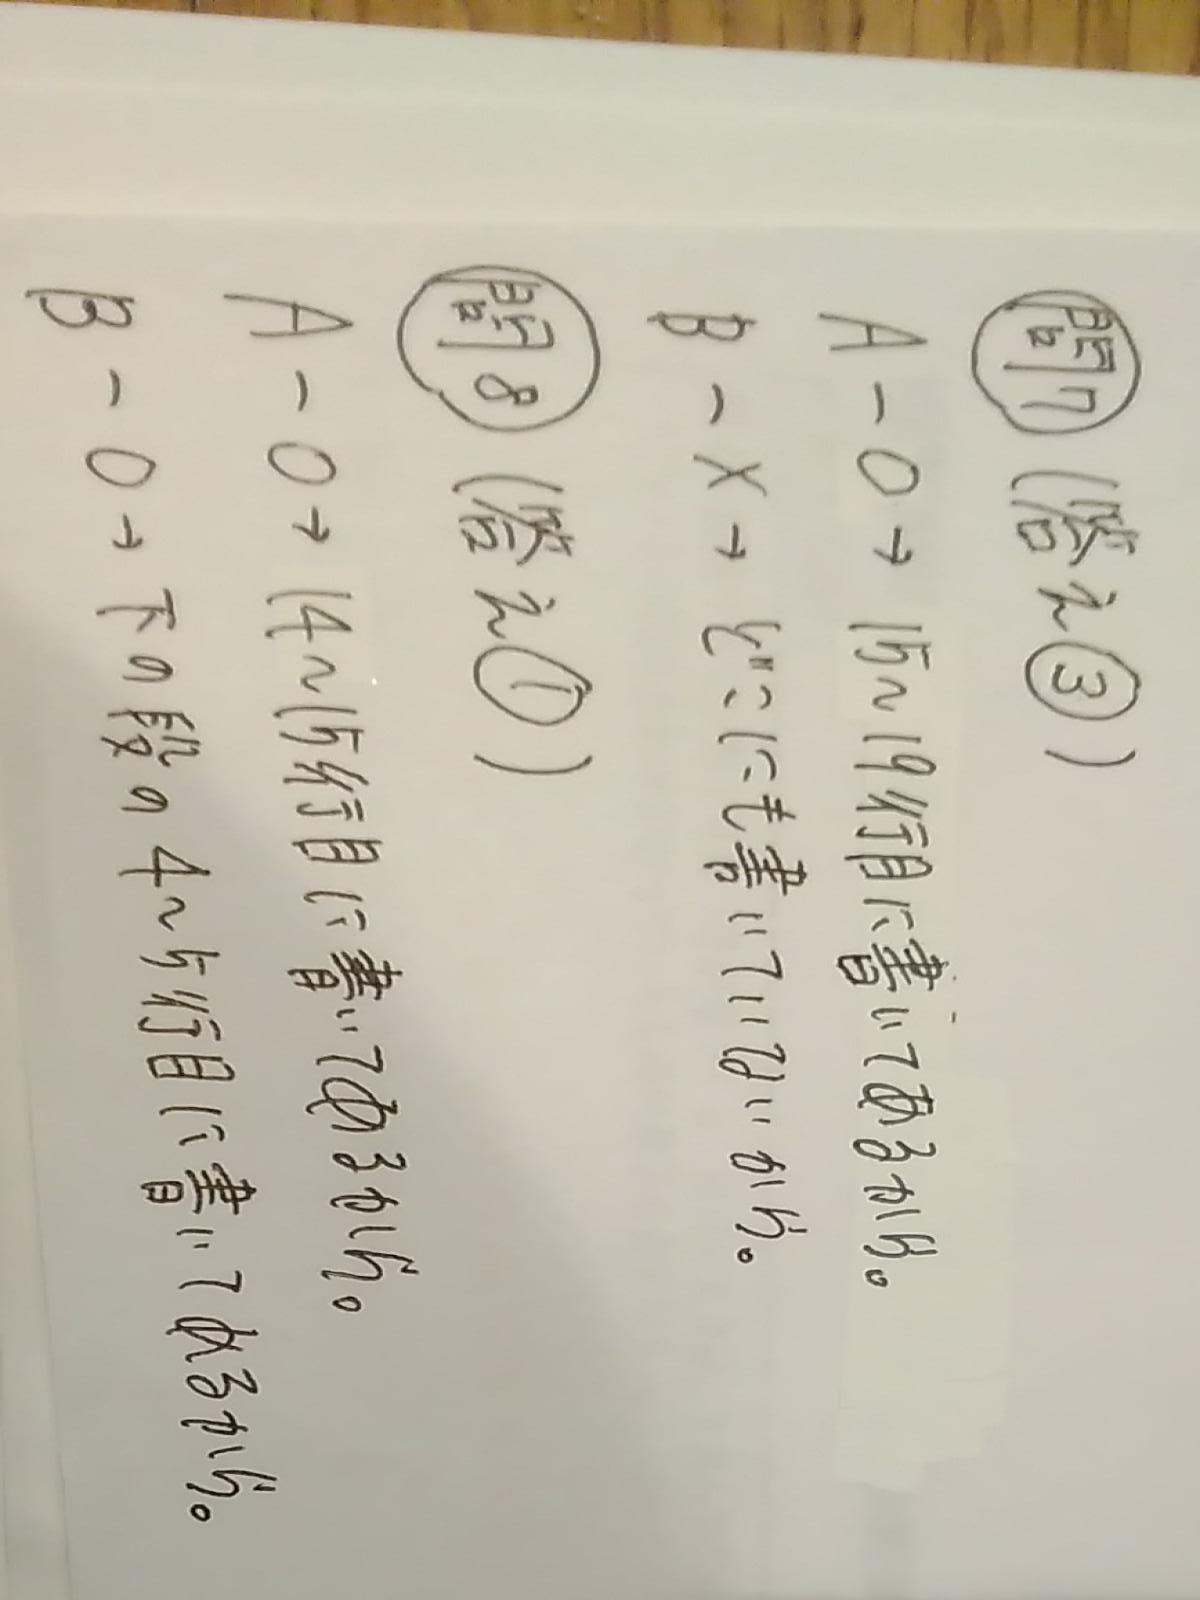 問7 (答え③)
A - O → 15~19行目に書いてあるから。
B - X → どこにも書いていないから。
問8 (答え①)
A - O → 14~15行目に書いてあるから。
B - O → 下の段の4~5行目に書いてあるから。